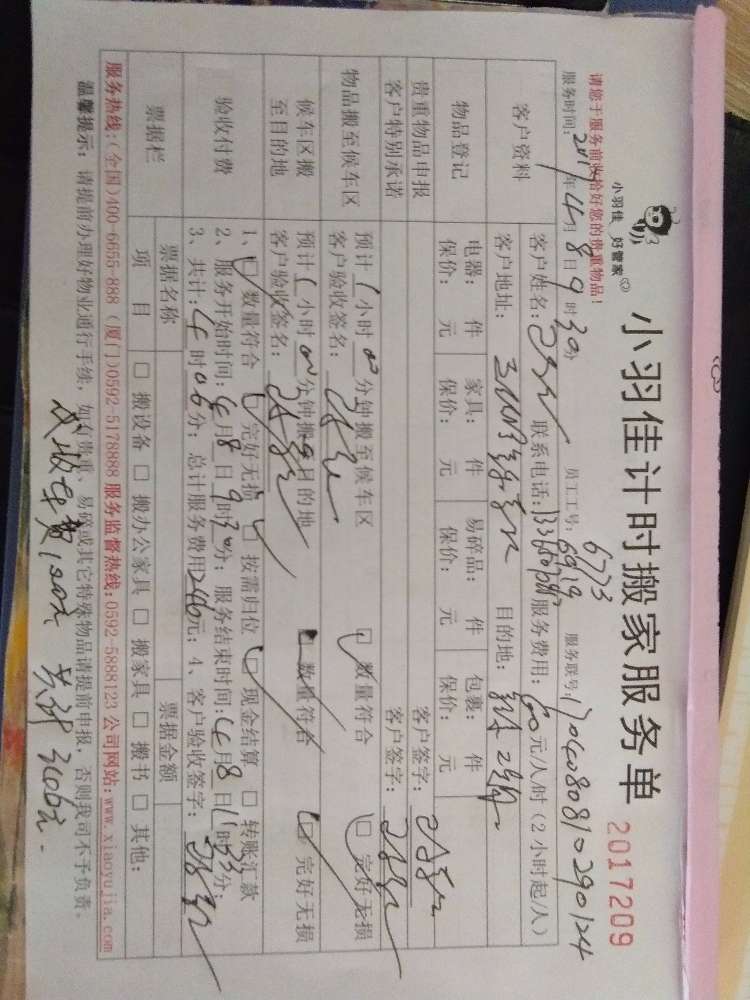 小羽佳 好管家
小羽佳计时搬家服务单
2017209
请您于服务前收拾好您的贵重物品!
员工工号: 6773
6919
服务联号: 1704080810290124
服务时间: 2017年4月8日9时30分
客户资料
客户姓名: 联系电话: 服务费用: 60元/人/时(2小时起/人)
客户地址: 目的地:
物品登记
电器: 件 家具: 件 易碎品: 件 包裹: 件
保价: 元 保价: 元 保价: 元 保价: 元
贵重物品申报 客户签字:
客户特别承诺 客户签字:
物品搬至候车区
预计1小时0分钟搬至候车区 □ 数量符合 □ 完好无损
客户验收签名:
候车区搬至目的地
预计1小时0分钟搬至目的地 □ 数量符合 □ 完好无损
客户验收签名:
验收付费
1、□ 数量符合 □ 完好无损 □ 按需归位 □ 现金结算 □ 转账汇款
2、服务开始时间: 4月8日9时30分; 服务结束时间: 4月8日11时33分;
3、共计: 4时06分; 总计服务费用246元; 4、客户验收签字:
票据栏
票据名称 票据金额
项目 □ 搬设备 □ 搬办公家具 □ 搬家具 □ 搬书 □ 其他:
服务热线:(全国)400-6655-888 (厦门)0592-5178888 服务监督热线:0592-5888123 公司网站:www.xiaoyujia.com
温馨提示: 请提前办理好物业通行手续, 如有贵重、易碎或其它特殊物品请提前申报, 否则我司不予负责。
及收车费100元 共计346元.